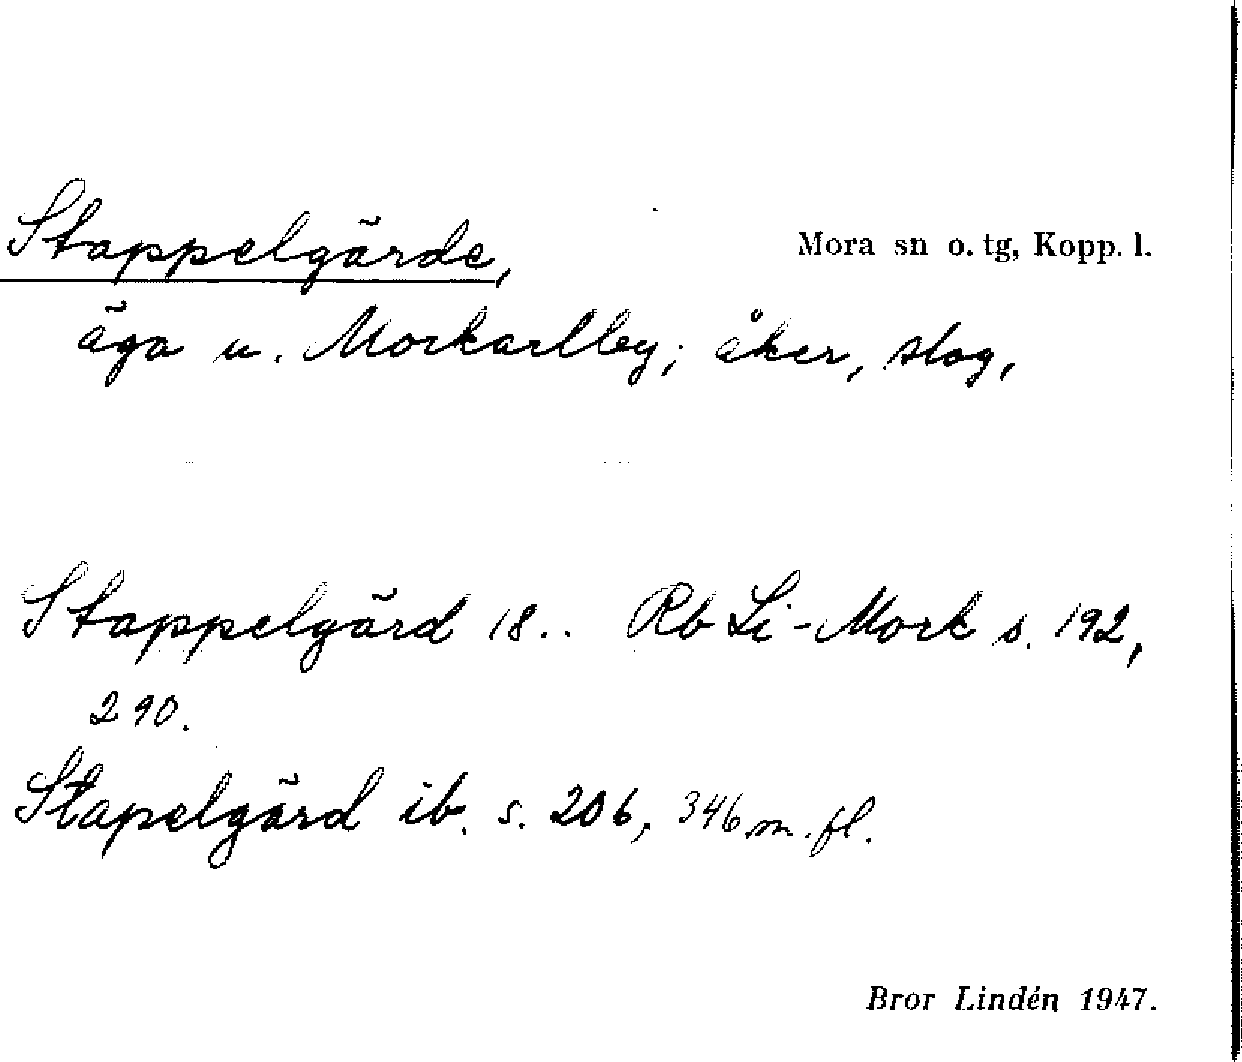 Stappelgärde, Mora sn o. tg, Kopp. l.
äga u. Morkarlby; åker, slog,
Stappelgärd 18.. Rb Li-Mork s. 192,
290.
Stapelgärd ib. s. 206, 346 m. fl.
Bror Lindén 1947.